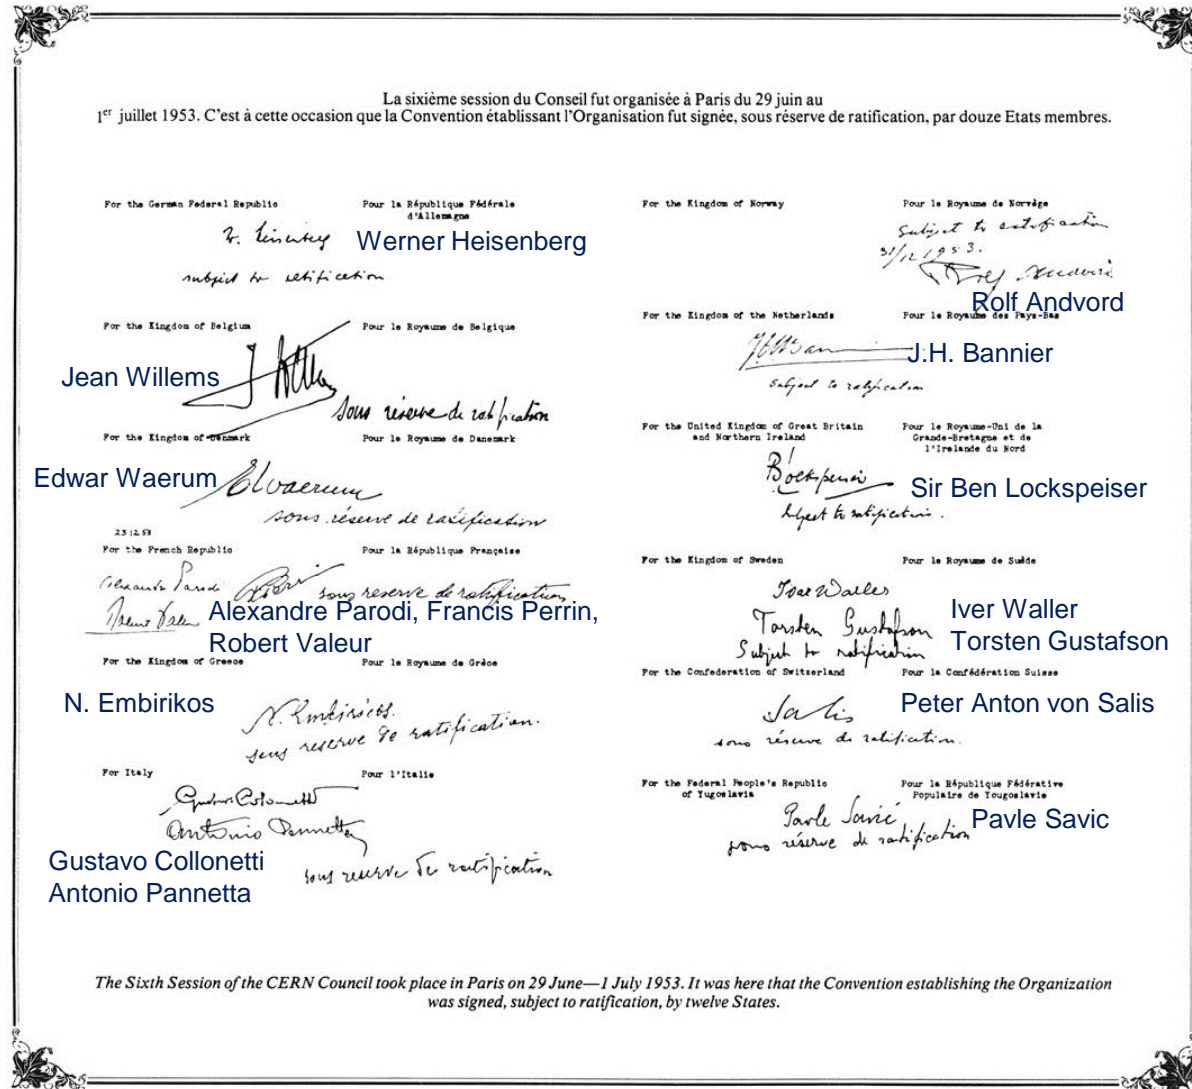 La sixième session du Conseil fut organisée à Paris du 29 juin au
1er juillet 1953. C'est à cette occasion que la Convention établissant l'Organisation fut signée, sous réserve de ratification, par douze Etats membres.
For the German Federal Republic
Pour la République Fédérale
d'Allemagne
Werner Heisenberg
subject to ratification
For the Kingdom of Belgium
Pour le Royaume de Belgique
Jean Willems
sous réserve de ratification
For the Kingdom of Denmark
Pour le Royaume de Danemark
Edwar Waerum
EWaerum
sous réserve de ratification
23 12 53
For the French Republic
Pour la République Française
Alexandre Parodi
sous reserve de ratification
Alexandre Parodi, Francis Perrin,
Robert Valeur
For the Kingdom of Greece
Pour le Royaume de Grèce
N. Embirikos
N. Embiricos.
sous reserve de ratification.
For Italy
Pour l'Italie
Gustavo Colonnetti
Antonio Pennetta
Gustavo Collonetti
Antonio Pannetta
sous reserve de ratification
For the Kingdom of Norway
Pour le Royaume de Norvège
Subject to ratification
31/12 1953.
Rolf Andvord
Rolf Andvord
For the Kingdom of the Netherlands
Pour le Royaume des Pays-Bas
JHBannier
J.H. Bannier
Subject to ratification
For the United Kingdom of Great Britain
and Northern Ireland
Pour le Royaume-Uni de la
Grande-Bretagne et de
l'Irelande du Nord
B Lockspeiser
Sir Ben Lockspeiser
Subject to ratification.
For the Kingdom of Sweden
Pour le Royaume de Suède
Ivar Waller
Iver Waller
Torsten Gustafson
Torsten Gustafson
Subject to ratification
For the Confederation of Switzerland
Pour la Confédération Suisse
Peter Anton von Salis
Salis
sous réserve de ratification.
For the Federal People's Republic
of Yugoslavia
Pour la République Fédérative
Populaire de Yougoslavie
Pavle Savić
Pavle Savic
sous réserve de ratification
The Sixth Session of the CERN Council took place in Paris on 29 June—1 July 1953. It was here that the Convention establishing the Organization
was signed, subject to ratification, by twelve States.